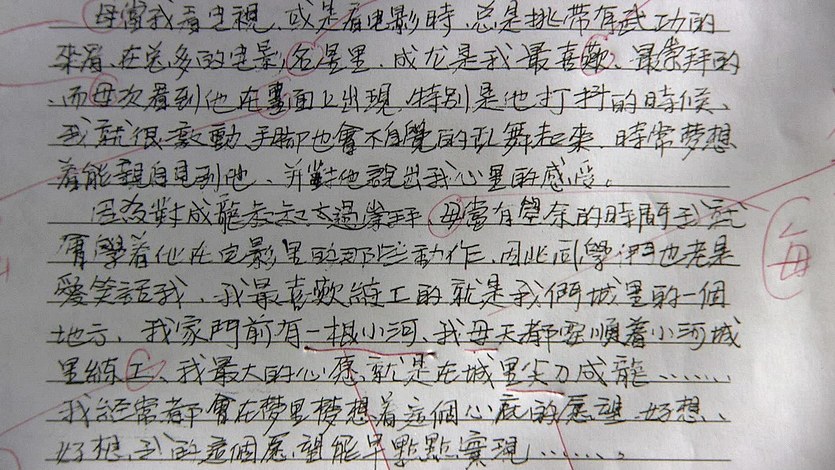 母當我看电視、或是看电影時、总是挑带有武功的
來看、在总多的电影名星里、成龙是我最喜歡、最崇拜的
、而母次看到他在畫面上出現、特別是他打抖的時候、
我就很激動、手脚也會不自覺的乱舞起來、時常梦想
着能親自見到他、并對他說出我心里的感受。
因为對成龍叔叔太過崇拜、母當有空余的時間我就
會學着他在电影里的那些動作、因此同學們也老是
愛笑話我、我最喜歡練工的就是我們城里的一個
地方、我家門前有一根小河、我母天都要順着小河城
里練工、我最大的心愿就是在城里尖刀成龍……
我經常都會在梦里梦想着这個心底的愿望、好想、
好想、我的這個愿望能早點點實現……。
每